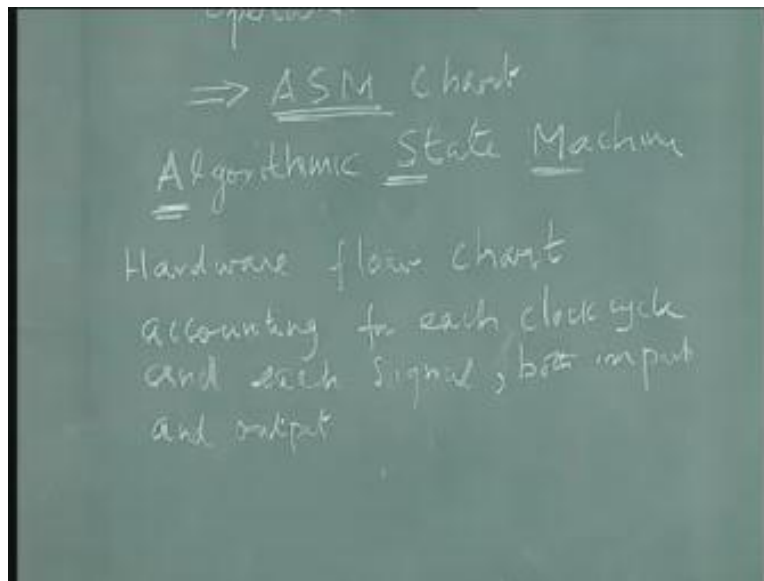 ⇒ ASM Chart
Algorithmic State Machine
Hardware flow chart
accounting for each clock cycle
and each signal, both input
and output